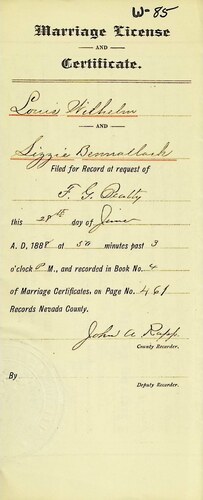 W-85
Marriage License
AND
Certificate.
Louis Wilhelm
AND
Lizzie Bennallack
Filed for Record at request of
F. G. Beatty
this 28th day of June
A. D. 1888 at 50 minutes past 3
o'clock P M., and recorded in Book No. 4
of Marriage Certificates, on Page No. 461
Records Nevada County.
John A Rapp
County Recorder.
By
Deputy Recorder.